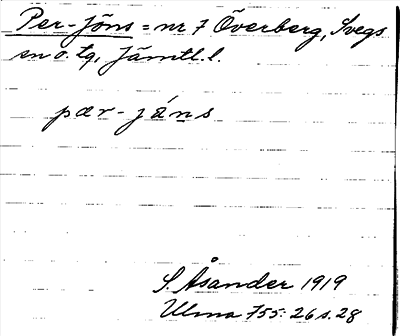 Per-Jöns = nr 7 Överberg, Svegs
sn o. tg, Jämtl. l.
pær-jáns
S. Åsander 1919
Ulma 755: 26 s. 28